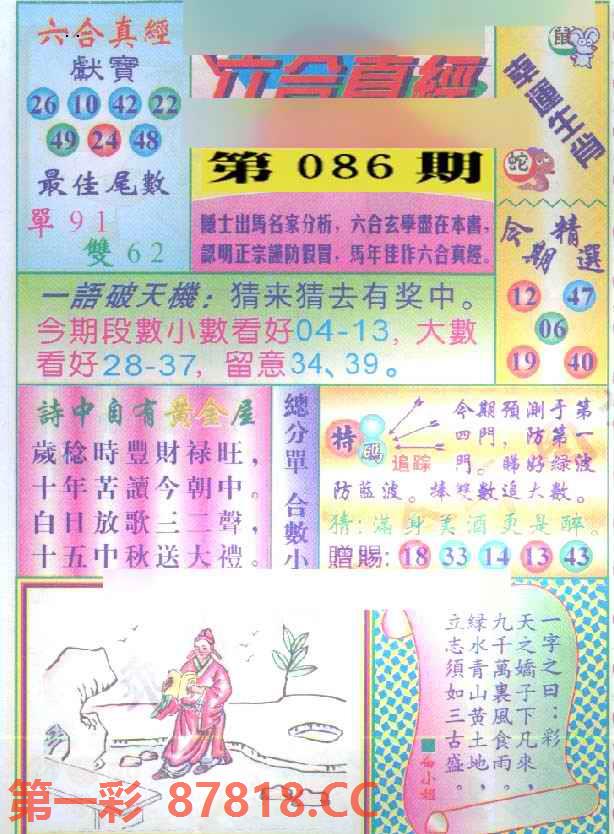 六合真經
獻寶
26 10 42 22
49 24 48
最佳尾數
單 9 1
雙 6 2
六合真經
第 086 期
隱士出馬名家分析，六合玄學盡在本書，
認明正宗謹防假冒，馬年佳作六合真經。
鼠
幸運生肖
蛇
今期精選
12 47
06
19 40
一語破天機：猜来猜去有奖中。
今期段數小數看好04-13，大數
看好28-37，留意34、39。
詩中自有黃金屋
歲稔時豐財禄旺，
十年苦讀今朝中。
白日放歌三二聲，
十五中秋送大禮。
總分單 合數小
特碼
追踪
今期預測于第
四門，防第一
門。睇好緑波
防藍波。捧雙數追大數。
猜：滿身美酒更是醉。
贈賜：18 33 14 13 43
一字之曰：彩
天之嬌子下凡來，
九千萬裏風食雨。
緑水青山黃土地，
立志須如三古盛。
第一彩 87818.CC